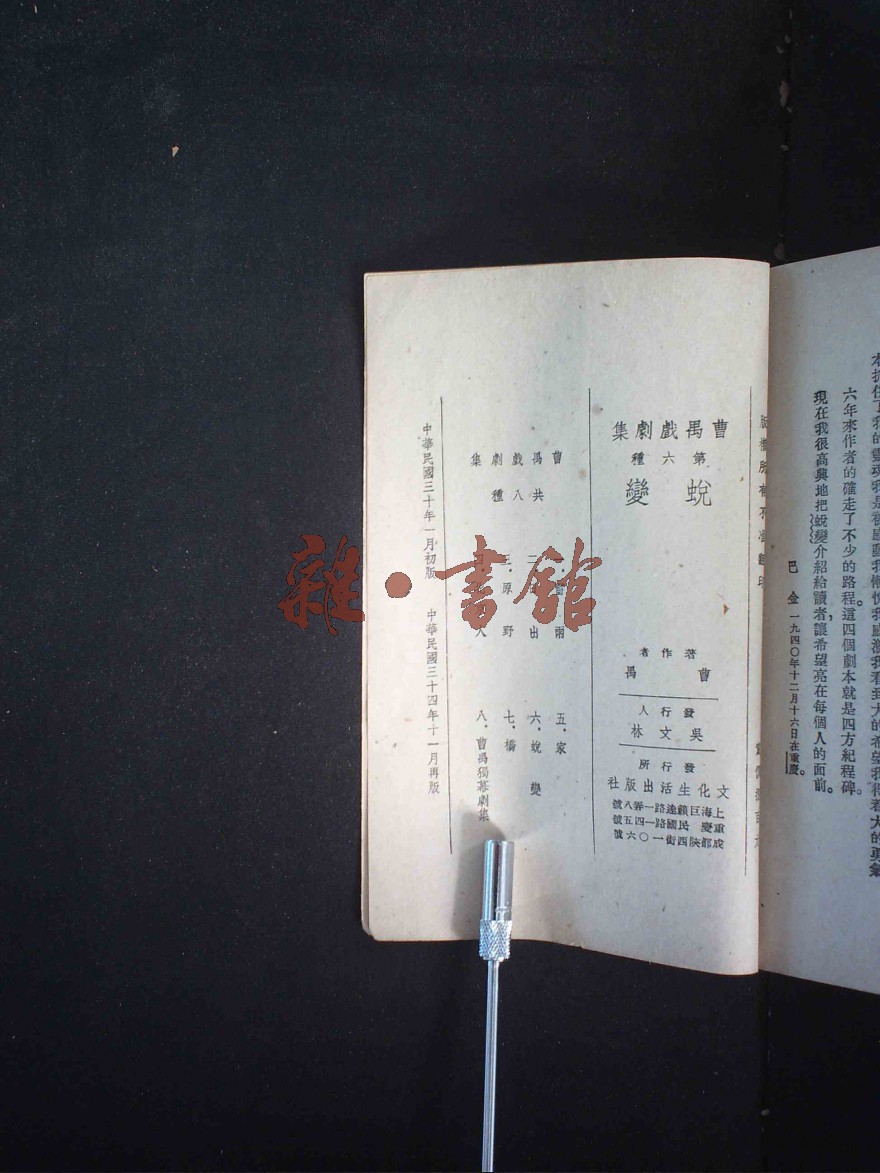 本
六年來作者的確走了不少的路程。這四個劇本就是四方紀程碑。
現在我很高興地把蛻變介紹給讀者,讓希望亮在每個人的面前。
巴金 一九四〇年十二月十六日在重慶。
版權所有不准翻印
曹禺戲劇集
第六種
蛻變
著作者
曹禺
發行人
吳文林
發行所
文化生活出版社
上海巨籟達路一弄八號
重慶民國路一四五號
成都陝西街一〇六號
曹禺戲劇集
共八種
雨
二、出
三、原野
人
五、家
六、蛻變
七、橋
八、曹禺獨幕劇集
中華民國三十年一月初版
中華民國三十四年十一月再版
雜·書館